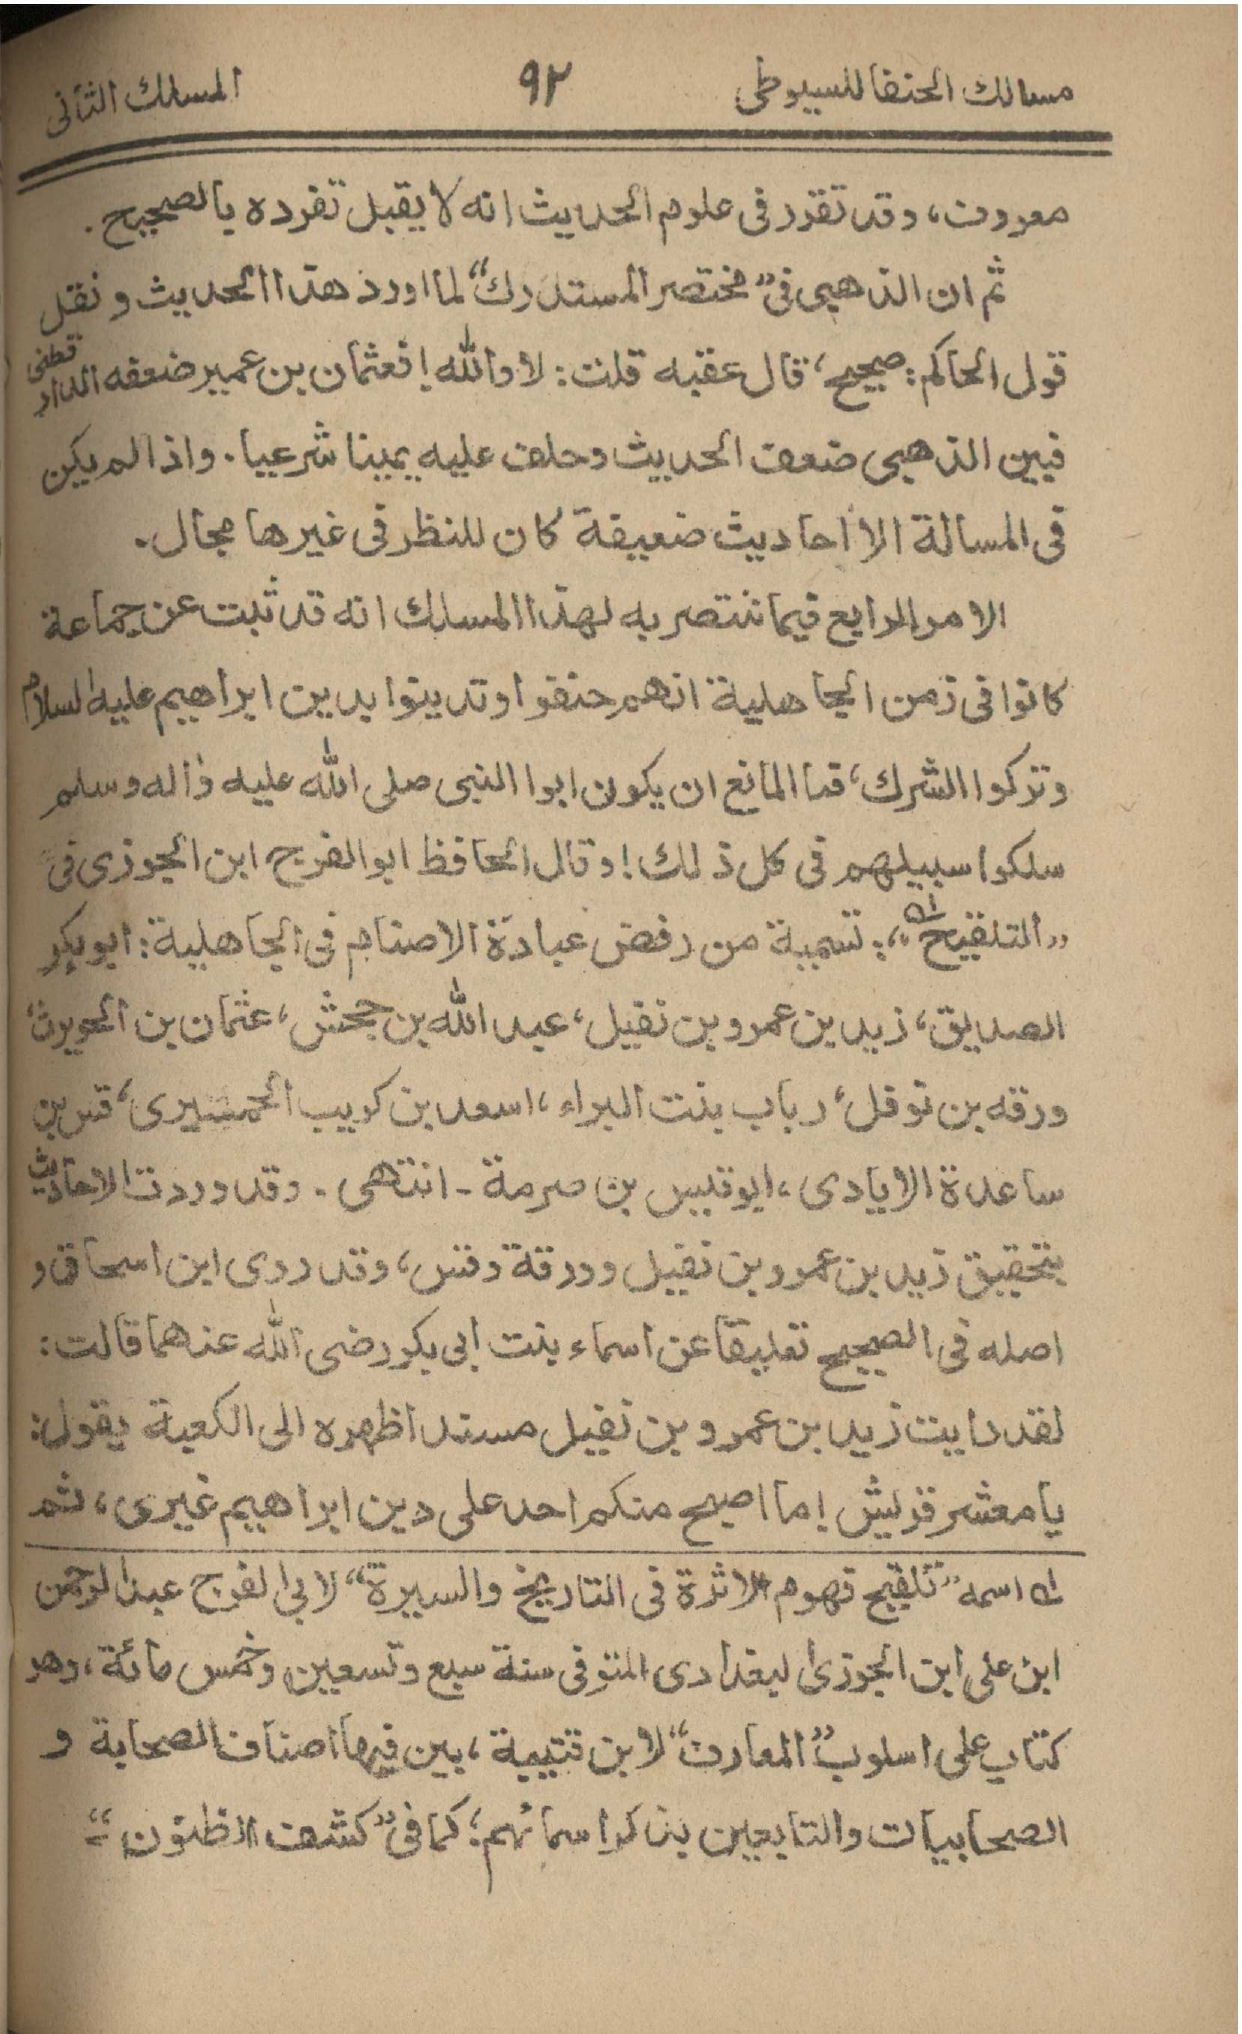 مسالك الحنفا للسيوطى ٩٢ المسلك الثانى
معروف، وقد تقرر فى علوم الحديث انه لا يقبل تفرده بالصحيح.
ثم ان الذهبى فى "مختصر المستدرك" لما اورد هذا الحديث ونقل
قول الحاكم: صحيح، قال عقبه قلت: لا والله! فعثمان بن عمير ضعفه الدارقطنى
فبين الذهبى ضعف الحديث وحلف عليه يمينا شرعيا. واذا لم يكن
فى المسالة الا احاديث ضعيفة كان للنظر فى غيرها مجال.
الامر الرابع فيما ننتصر به لهذا المسلك انه قد ثبت عن جماعة
كانوا فى زمن الجاهلية انهم حنفوا وتدينوا بدين ابراهيم عليه السلام
وتركوا الشرك، فما المانع ان يكون ابوا النبى صلى الله عليه وآله وسلم
سلكوا سبيلهم فى كل ذلك! وقال الحافظ ابوالفرج ابن الجوزى فى
"التلقيح" له: تسمية من رفض عبادة الاصنام فى الجاهلية: ابوبكر
الصديق، زيد بن عمرو بن نفيل، عبد الله بن جحش، عثمان بن الحويرث،
ورقه بن نوفل، رباب بنت البراء، اسعد بن كريب الحميرى، قس بن
ساعدة الايادى، ابوقيس بن صرمة - انتهى. وقد وردت الاحاديث
بتحقيق زيد بن عمرو بن نفيل وورقة وقس، وقد روى ابن اسحاق و
اصله فى الصحيح تعليقا عن اسماء بنت ابى بكر رضى الله عنهما قالت:
لقد رايت زيد بن عمرو بن نفيل مسندا ظهره الى الكعبة يقول:
يا معشر قريش! ما اصبح منكم احد على دين ابراهيم غيرى، ثم
له اسمه "تلقيح فهوم الاثرة فى التاريخ والسيرة" لابى الفرج عبد الرحمن
ابن على ابن الجوزى البغدادى المتوفى سنة سبع وتسعين وخمس مائة، وهو
كتاب على اسلوب "المعارف" لابن قتيبة، بين فيها اصناف الصحابة و
الصحابيات والتابعين بذكر اسمائهم؛ كما فى "كشف الظنون"